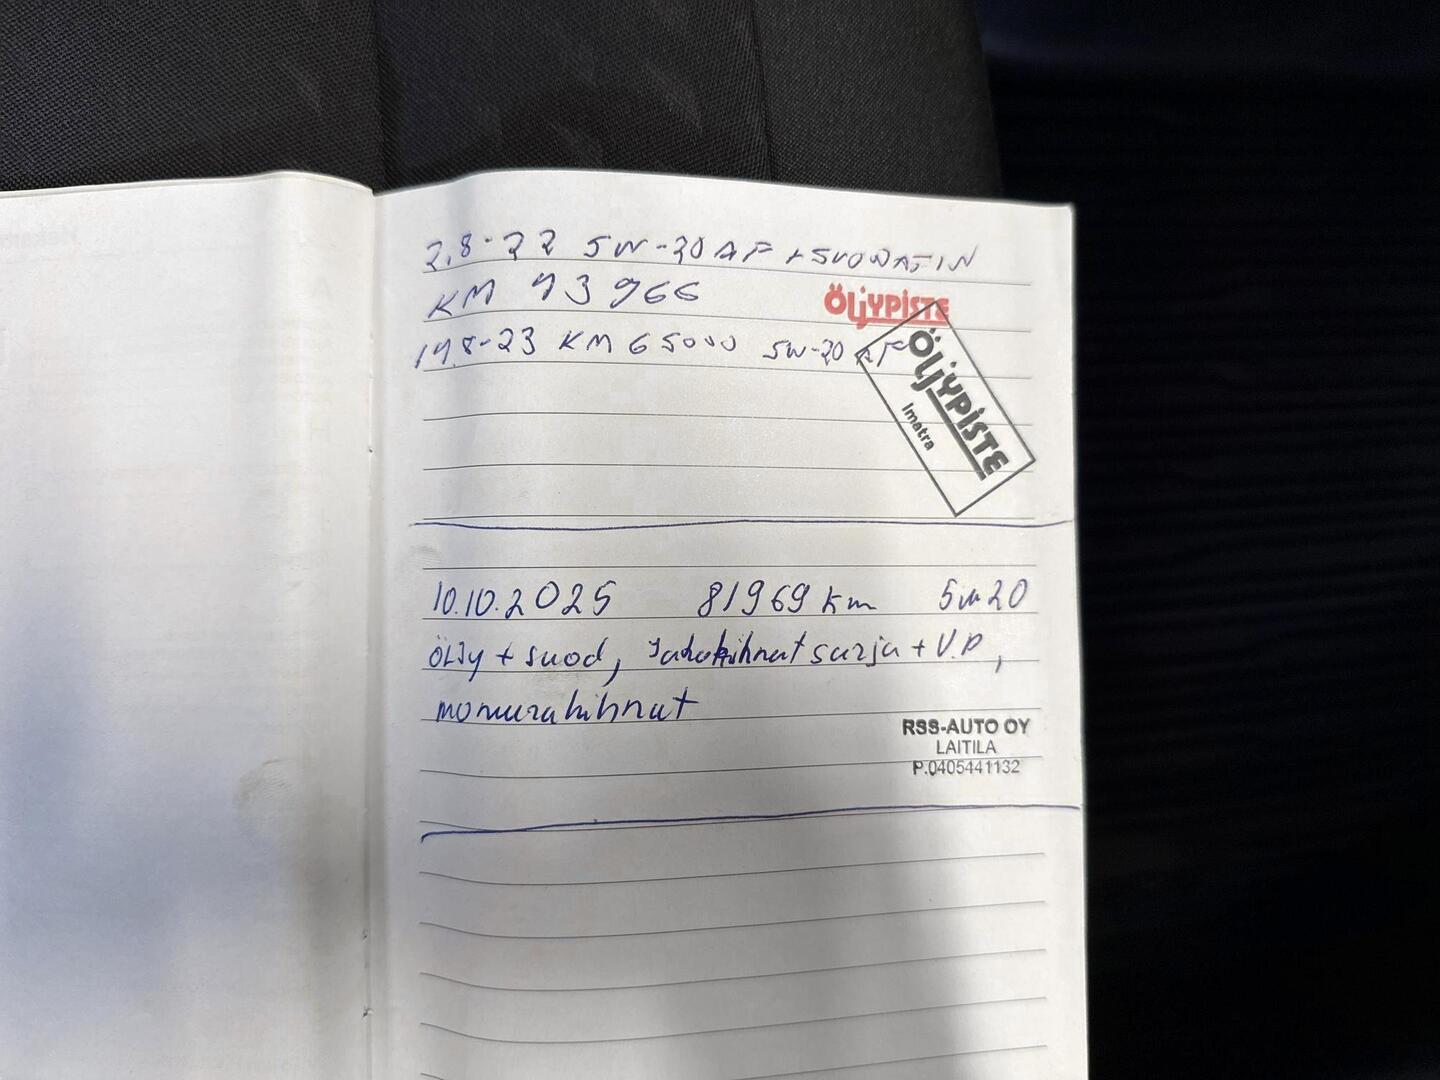 2.8-22 5W-20 AF + SUODATIN
KM 43966
ÖLJYPISTE
14.8-23 KM 65000 5W-20 AF
ÖLJYPISTE
Imatra
10.10.2025 81969 km 5w20
ÖLJy + suod, Jakohihnat sarja + V.P,
moniurahihnat
RSS-AUTO OY
LAITILA
P.0405441132